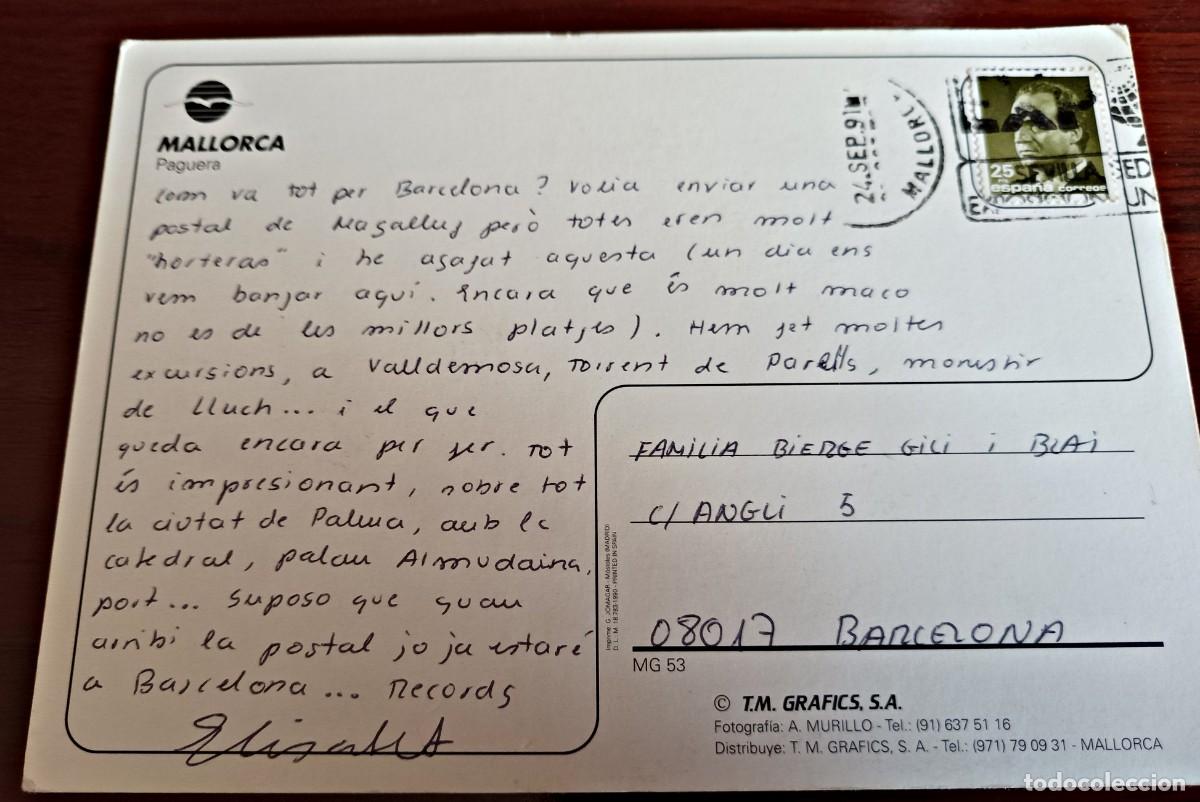 MALLORCA
Paguera
Com va tot per Barcelona? Volia enviar una
postal de Magalluf però totes eren molt
"horteras" i he agafat aquesta (un dia ens
vem banjar aquí. Encara que és molt maco
no es de les millors platjes). Hem fet moltes
excursions, a Valldemosa, Torrent de Parells, monestir
de Lluch... i el que
queda encara per fer. Tot
és impresionant, sobre tot
la ciutat de Palma, amb la
catedral, palau Almudaina,
port... Suposo que quan
arribi la postal jo ja estaré
a Barcelona... Records
Elisabet
24 SEP 91
MALLORC
SEVILLA
ED
UN
25
España correos
FAMILIA BIERGE GILI i BLAI
C/ ANGLI 5
08017 BARCELONA
MG 53
Imprime: G. JOMAGAR - Móstoles (MADRID)
D. L. M. 18.783-1990 - PRINTED IN SPAIN
© T.M. GRAFICS, S.A.
Fotografía: A. MURILLO - Tel.: (91) 637 51 16
Distribuye: T. M. GRAFICS, S. A. - Tel.: (971) 79 09 31 - MALLORCA
todocoleccion